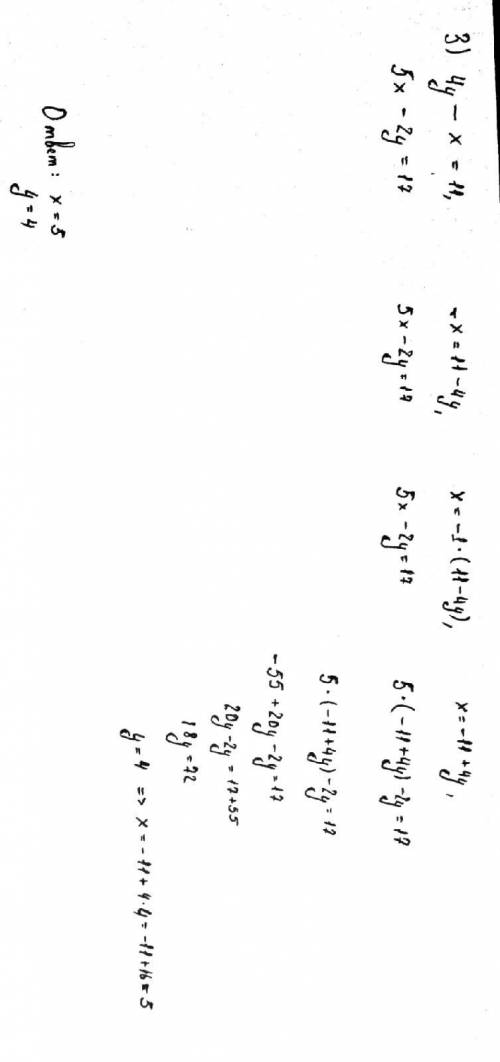 3) 4y - x = 11,
5x - 2y = 17
-x = 11 - 4y,
5x - 2y = 17
x = -1·(11-4y),
5x - 2y = 17
x = -11 + 4y,
5·(-11+4y) - 2y = 17
5·(-11+4y) - 2y = 17
-55 + 20y - 2y = 17
20y - 2y = 17 + 55
18y = 72
y = 4 => x = -11 + 4·4 = -11 + 16 = 5
Ответ: x = 5
y = 4